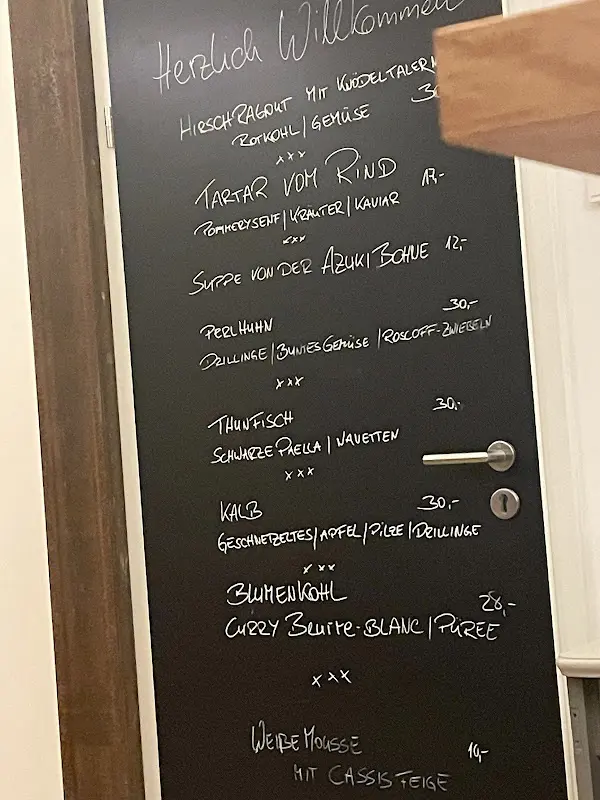 Herzlich Willkommen
HIRSCHRAGOUT MIT KNÖDELTALERN
ROTKOHL/GEMÜSE
xxx
TARTAR VOM RIND 17,-
POMMERYSENF/KRÄUTER/KAVIAR
xxx
SUPPE VON DER AZUKI BOHNE 12,-
PERLHUHN 30,-
DRILLINGE/BUNTES GEMÜSE/ROSCOFF-ZWIEBELN
xxx
THUNFISCH 30,-
SCHWARZE PAELLA/NAVETTEN
xxx
KALB 30,-
GESCHNETZELTES/APFEL/PILZE/DRILLINGE
xxx
BLUMENKOHL 28,-
CURRY BEURRE-BLANC/PÜREE
xxx
WEIßE MOUSSE
MIT CASSISFEIGE